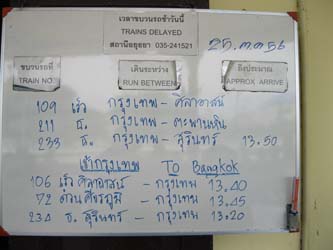 เวลาขบวนรถช้าวันนี้
TRAINS DELAYED
สถานีอยุธยา 035-241521
25.ตค56
ขบวนรถที่ เดินระหว่าง ถึงประมาณ
TRAIN NO. RUN BETWEEN APPROX ARRIVE
109 เร็ว กรุงเทพ - ศิลาอาสน์
211 ธ. กรุงเทพ - ตะพานหิน
233 ธ. กรุงเทพ - สุรินทร์ 13.50
เข้ากรุงเทพ To Bangkok
106 เร็ว ศิลาอาสน์ - กรุงเทพ 13.40
72 ด่วน ศีขรภูมิ - กรุงเทพ 13.45
234 ธ. สุรินทร์ - กรุงเทพ 13.20